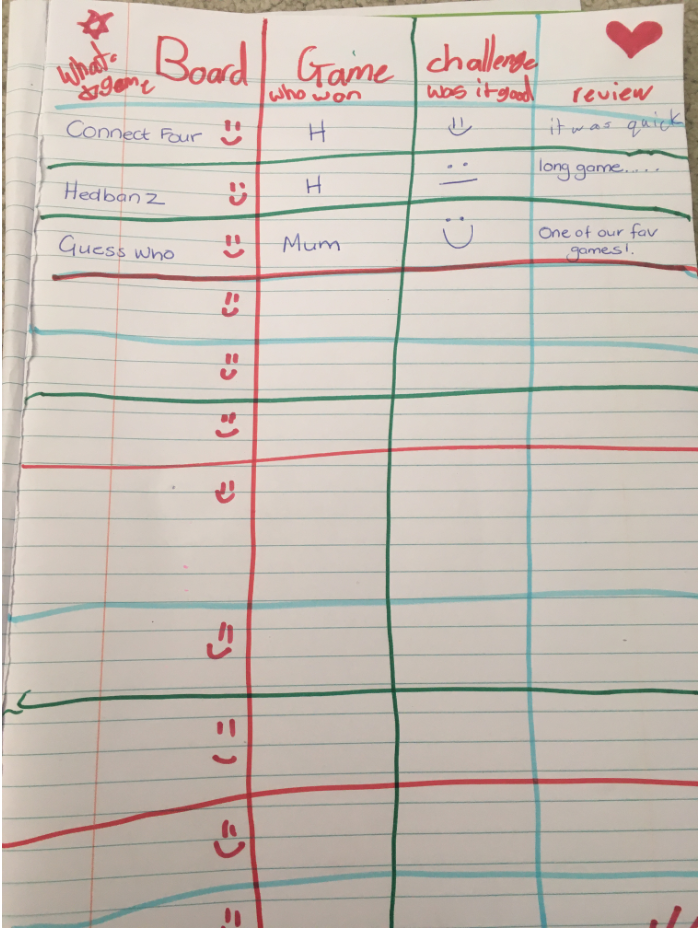 Board Game challenge
What game who won was it good review
Connect Four H it was quick
Hedbanz H long game.....
Guess who Mum One of our fav
games!.